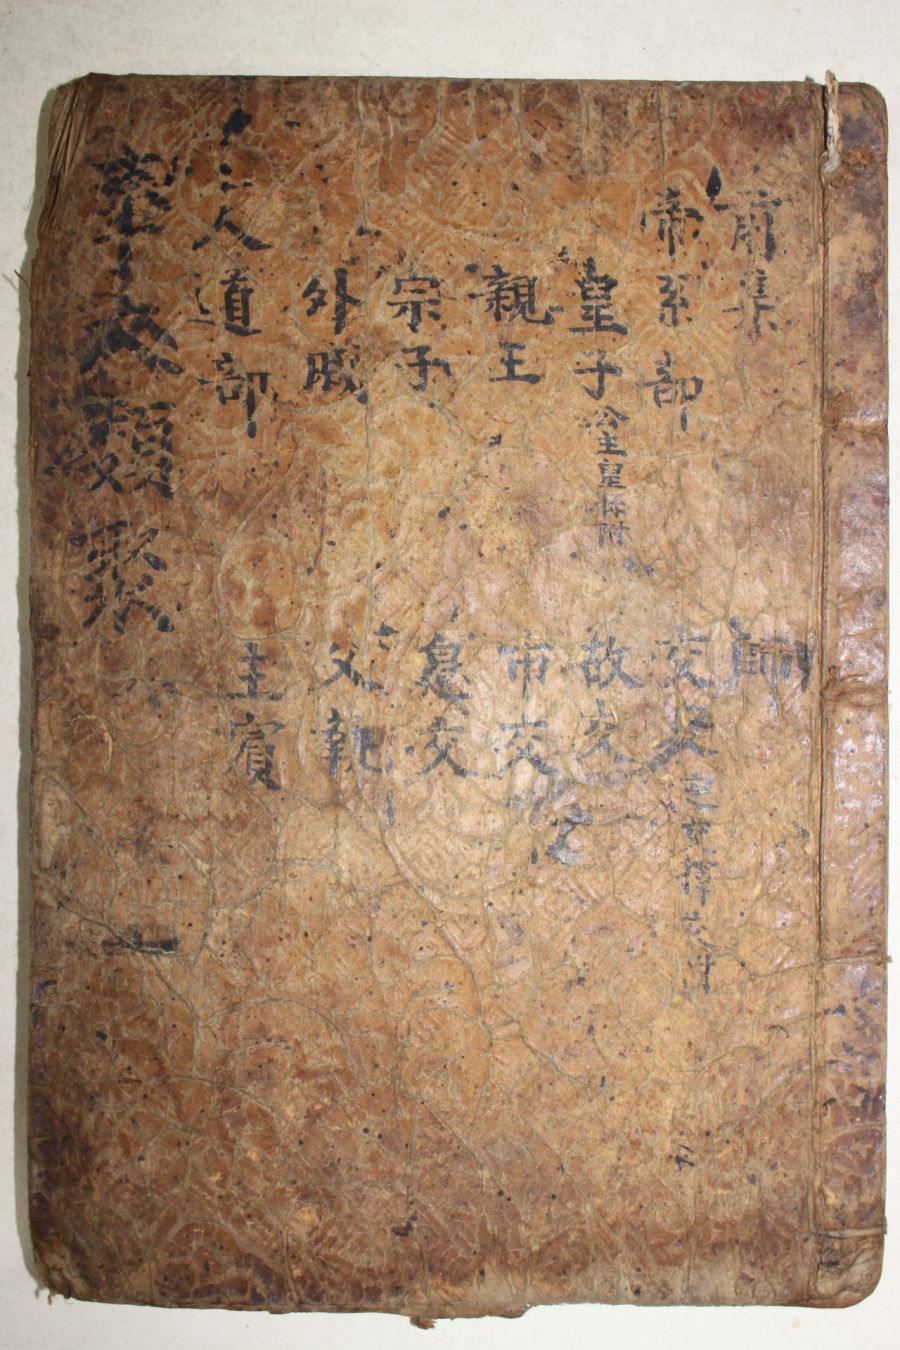 前集 師
帝系部 交友
皇子公主皇孫附 故交
親王 市交
宗子 交
外戚 父執
人道部 主賓
事文類聚 一